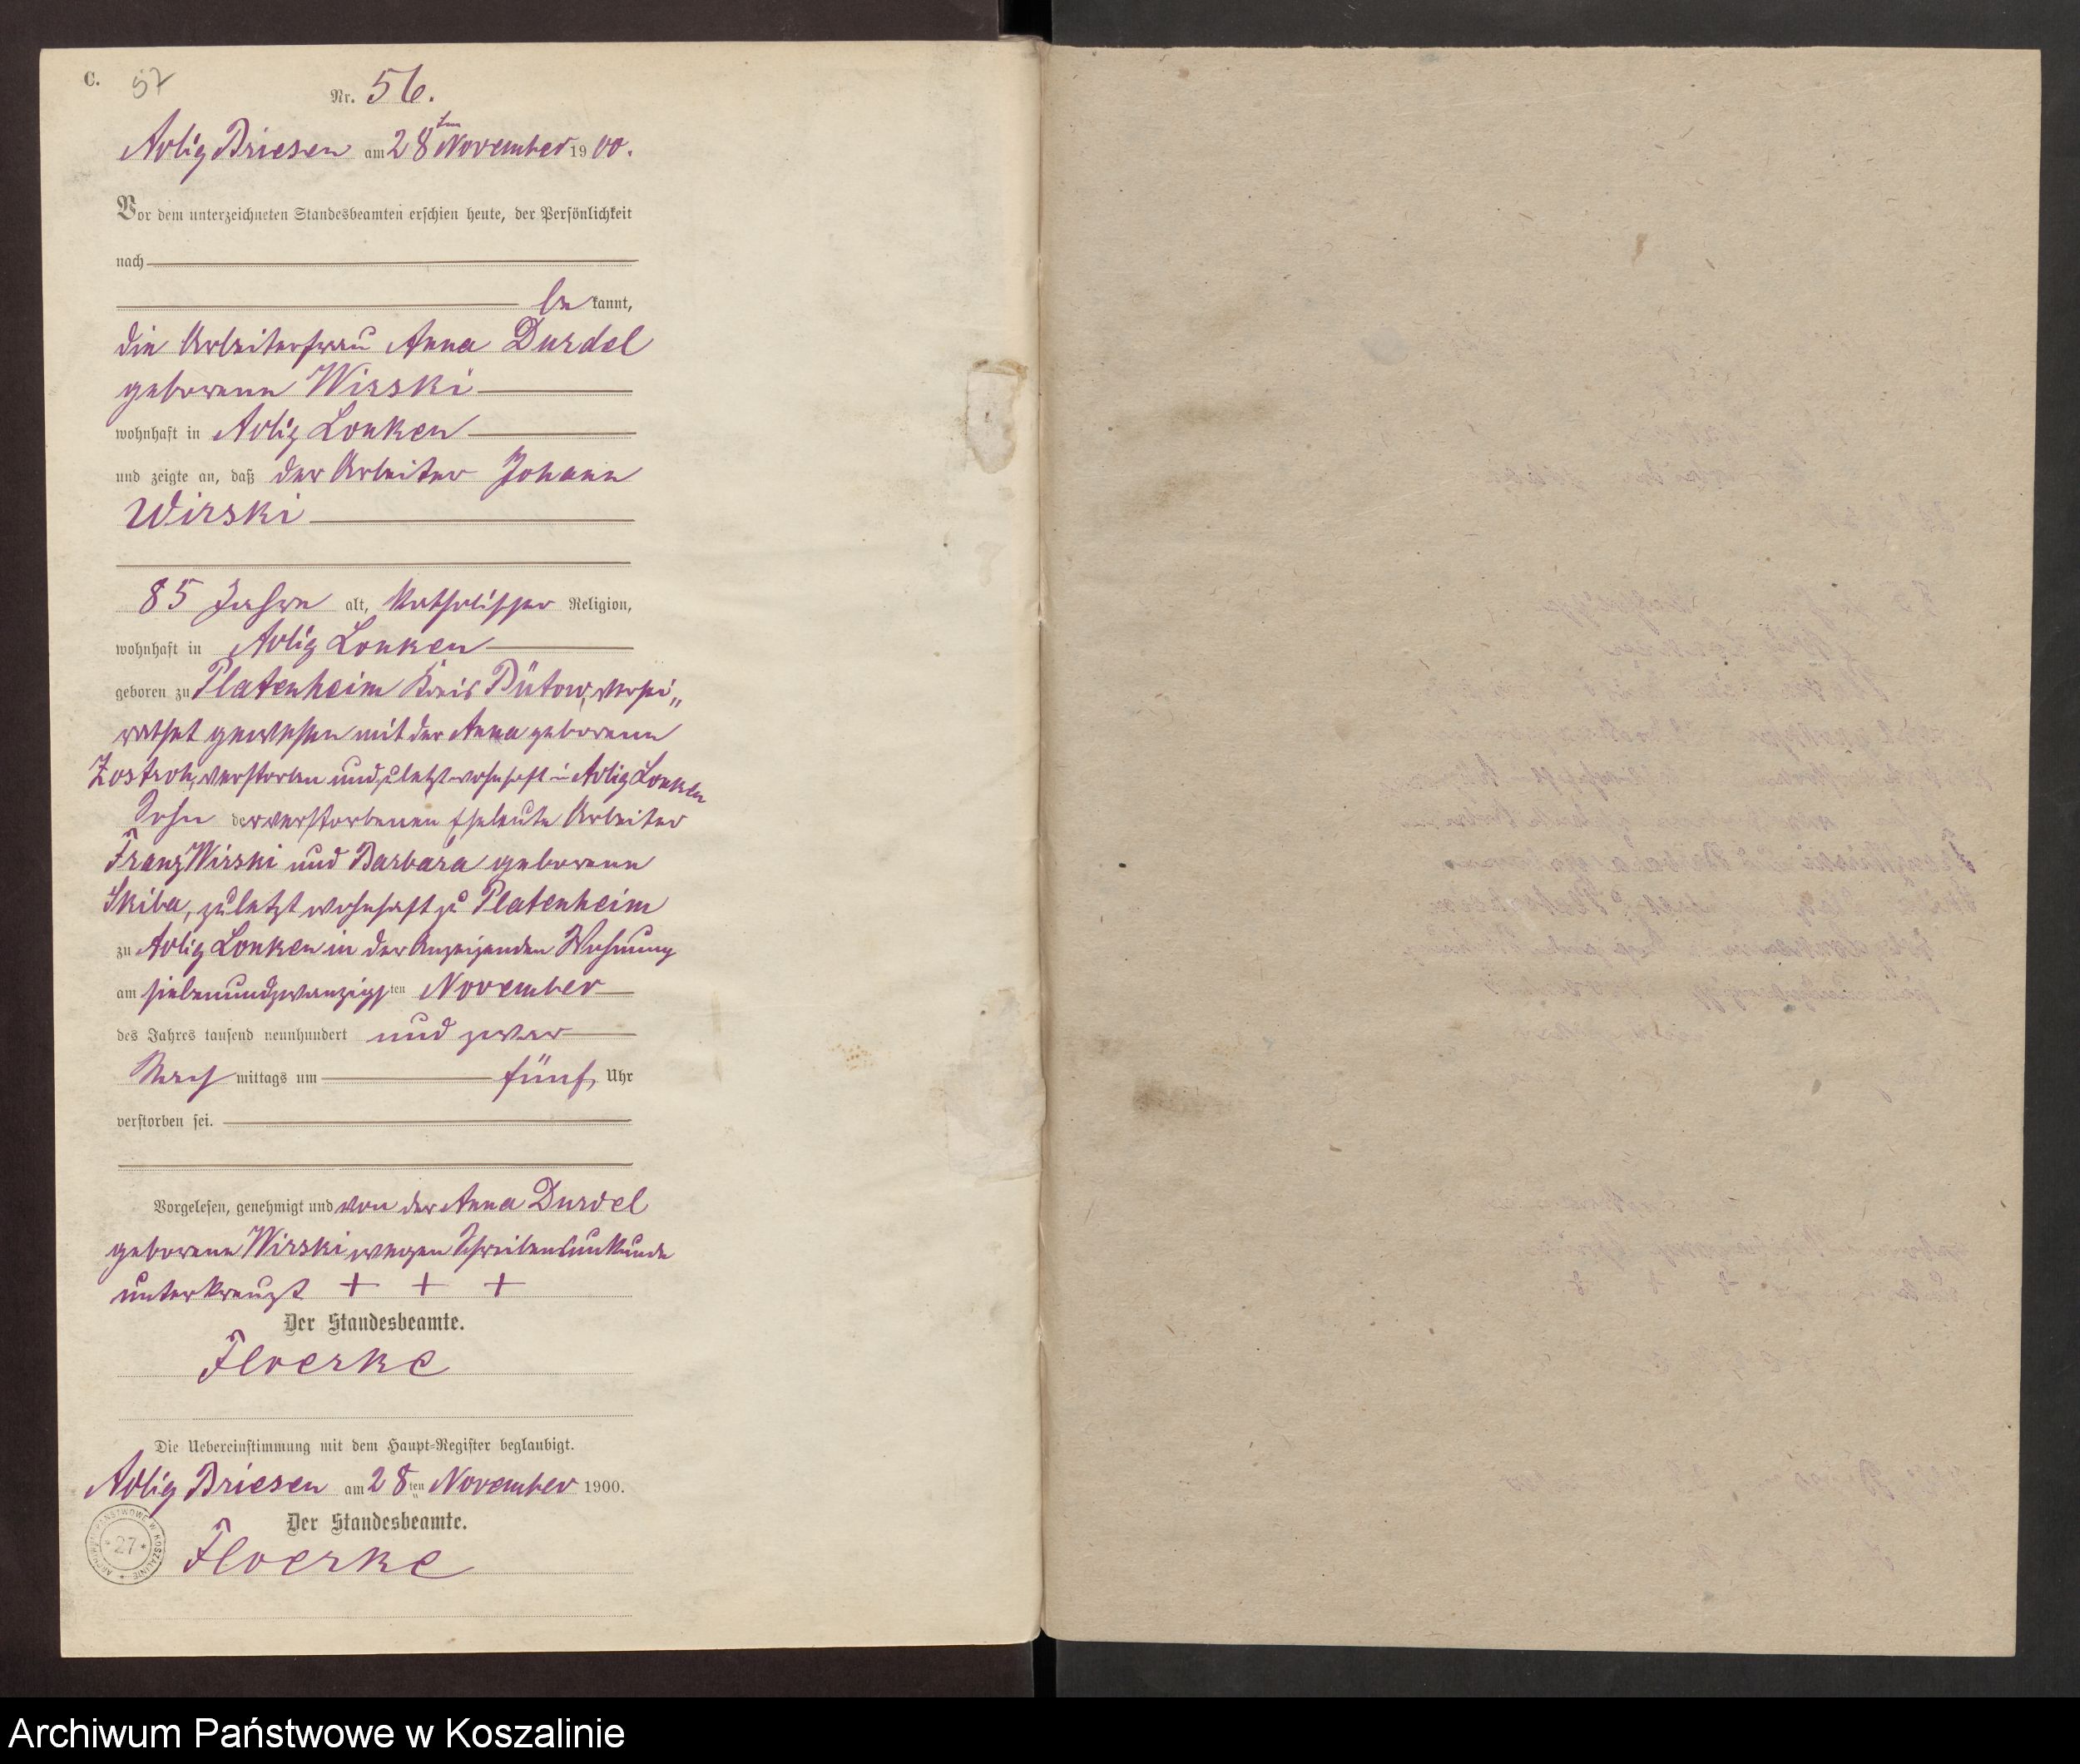 C. 57
Nr. 56.
Adlig Briesen am 28ten November 1900.
Vor dem unterzeichneten Standesbeamten erschien heute, der Persönlichkeit
nach
be kannt,
die Arbeiterfrau Anna Durdel
geborene Wirski
wohnhaft in Adlig Lonken
und zeigte an, daß der Arbeiter Johann
Wirski
85 Jahre alt, katholischer Religion,
wohnhaft in Adlig Lonken
geboren zu Platenheim Kreis Bütow, verhei„
rathet gewesen mit der Anna geborenen
Zostroh, verstorben und zuletzt wohnhaft in Adlig Lonken
Sohn der verstorbenen Eheleute Arbeiter
Franz Wirski und Barbara geborene
Skiba, zuletzt wohnhaft zu Platenheim
zu Adlig Lonken in der Anzeigenden Wohnung
am siebenundzwanzigsten November
des Jahres tausend neunhundert und zwar
Nach mittags um fünf Uhr
verstorben sei.
Vorgelesen, genehmigt und von der Anna Durdel
geborene Wirski wegen Schreibensunkunde
unterkreuzt + + +
Der Standesbeamte.
Floerke
Die Uebereinstimmung mit dem Haupt-Register beglaubigt.
Adlig Briesen am 28ten November 1900.
Der Standesbeamte.
Floerke
ARCHIWUM PAŃSTWOWE W KOSZALINIE * 27 *
Archiwum Państwowe w Koszalinie